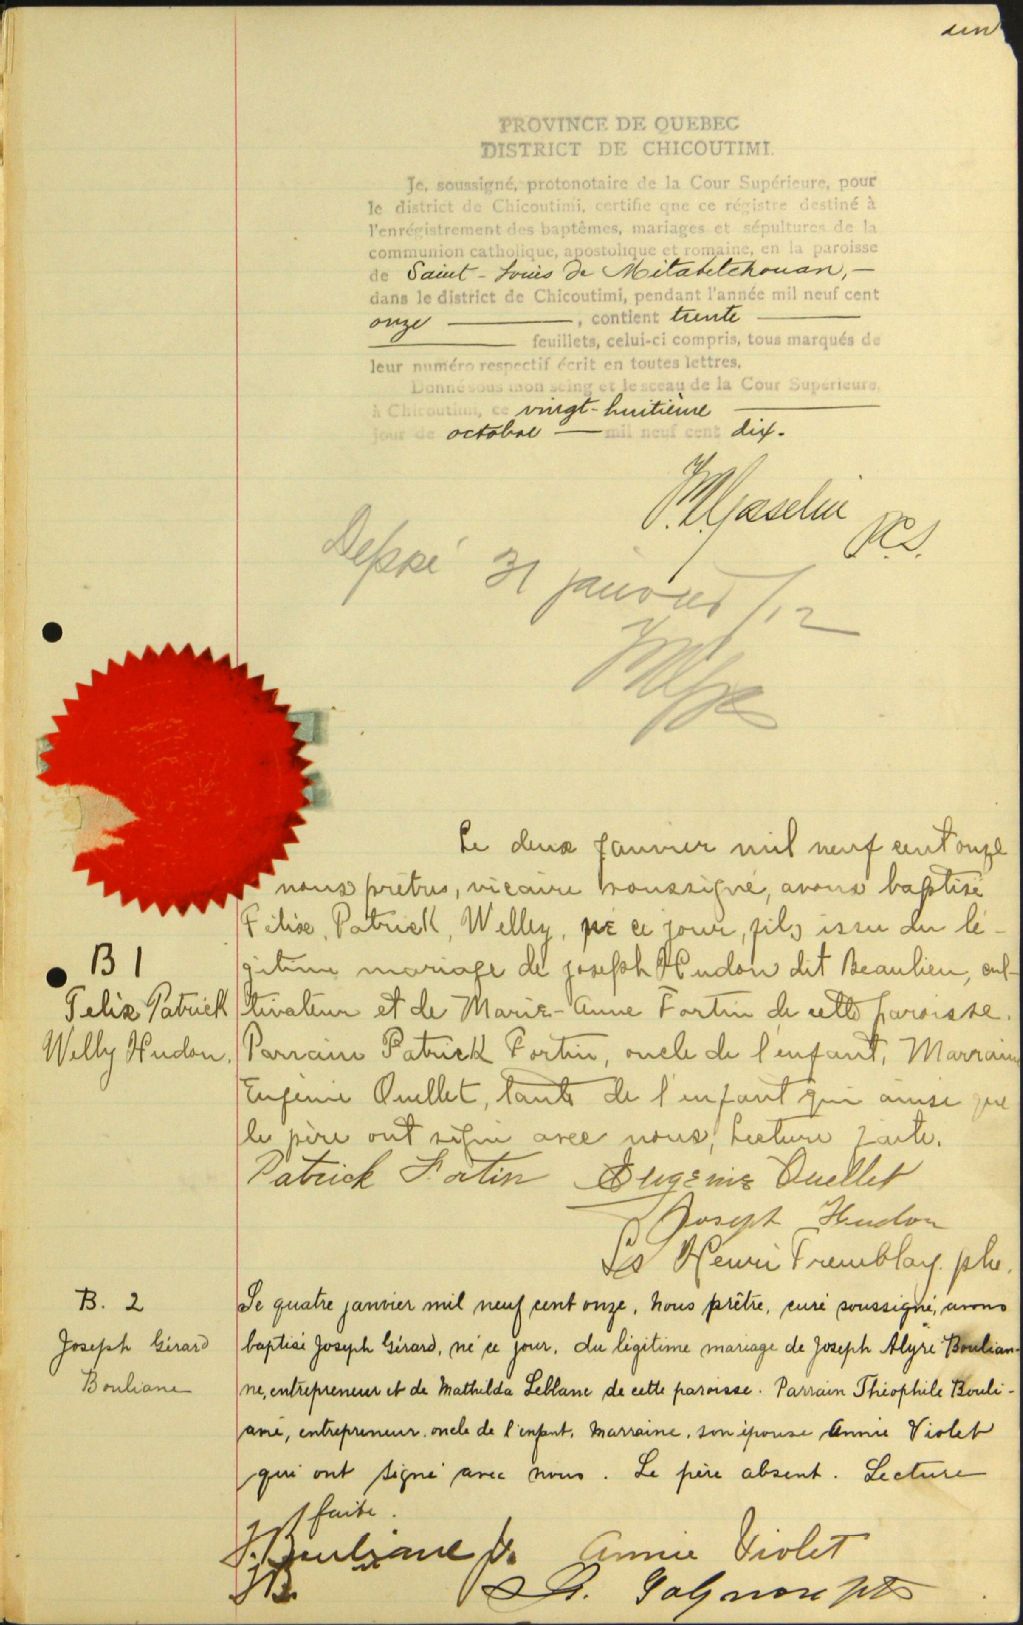 un
PROVINCE DE QUEBEC
DISTRICT DE CHICOUTIMI.
Je, soussigné, protonotaire de la Cour Supérieure, pour
le district de Chicoutimi, certifie qne ce régistre destiné à
l'enrégistrement des baptêmes, mariages et sépultures de la
communion catholique, apostolique et romaine, en la paroisse
de Saint-Louis de Métabetchouan, —
dans le district de Chicoutimi, pendant l'année mil neuf cent
onze ———, contient trente ———
——— feuillets, celui-ci compris, tous marqués de
leur numéro respectif écrit en toutes lettres.
Donné sous mon seing et le sceau de la Cour Supérieure,
à Chicoutimi, ce vingt-huitième ———
jour de octobre — mil neuf cent dix.
Gosselin
P.C.S.
Déposé 31 janvier /12
Le deux janvier mil neuf cent onze
nous prêtre, vicaire soussigné, avons baptisé
Félix, Patrick, Welley, né ce jour, fils issu du lé-
gitime mariage de Joseph Hudon dit Beaulieu, cul-
B 1
Felix Patrick
Welly Hudon.
tivateur et de Marie-Anne Fortin de cette paroisse.
Parrain Patrick Fortin, oncle de l'enfant, Marraine
Eugénie Ouellet, tante de l'enfant qui ainsi que
le père ont signé avec nous, Lecture faite.
Patrick Fortin Eugénie Ouellet
Joseph Hudon
Ls Henri Tremblay ptre.
B. 2
Joseph Gérard
Bouliane
Le quatre janvier mil neuf cent onze, Nous prêtre, curé soussigné, avons
baptisé Joseph Gérard, né ce jour, du légitime mariage de Joseph Alyre Boulian-
ne, entrepreneur et de Mathilda Leblanc de cette paroisse. Parrain Théophile Bouli-
ane, entrepreneur, oncle de l'enfant, Marraine, son épouse Annie Violet
qui ont signé avec nous. Le père absent. Lecture
faite.
T. Bouliane Annie Violet
TB.